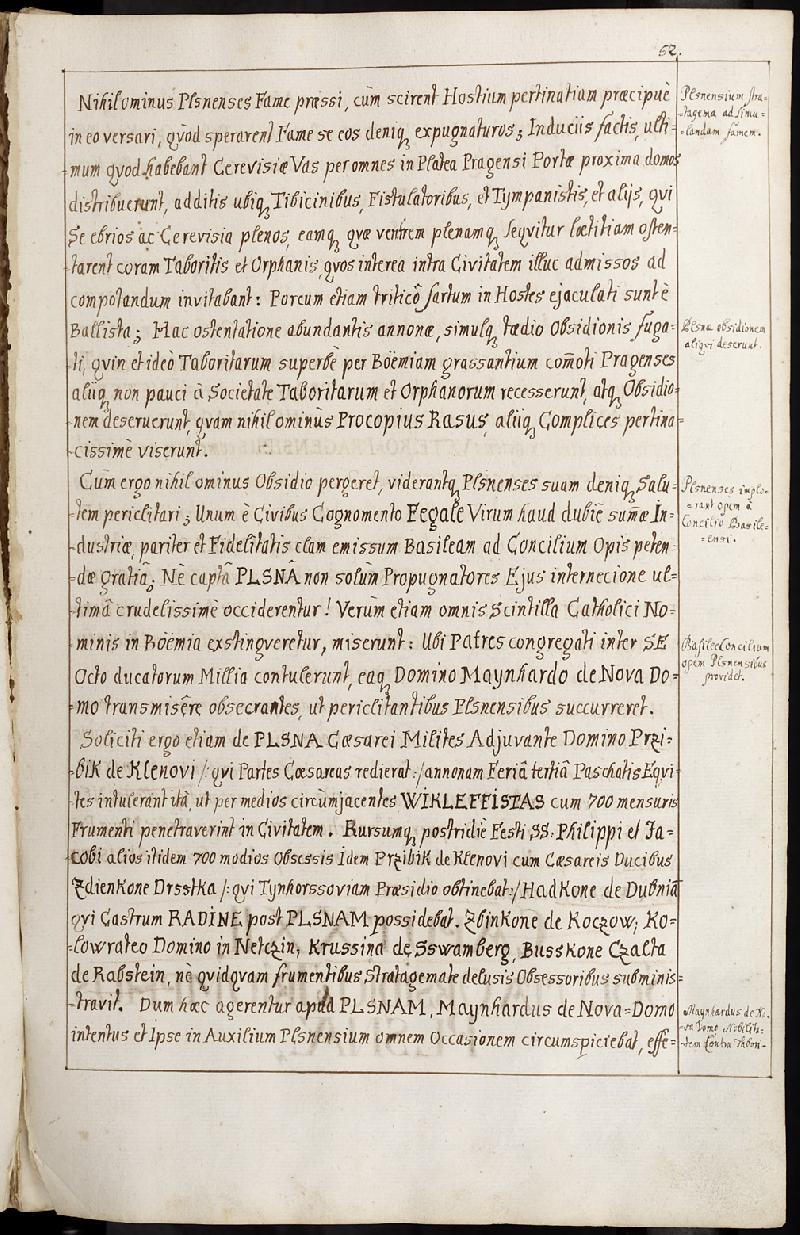 52.
Nihilominus Plsnenses Fame pressi, cum scirent Hostium pertinatiam præcipuè
in eo versari, quod sperarent Fame se eos deniq expugnaturos; Induciis factis, ulti=
=mum quod habebant Cerevisiæ Vas per omnes in Platea Pragensi Portæ proxima domos
distribuerunt, additis ubiq Tibicinibus, Fistulatoribus, et Tympanistis, et alijs, qvi
Se ebrios ac Cerevisia plenos, eamq qvæ ventrem plenamq Seqvitur lætitiam osten=
=tarent coram Taboritis et Orphanis, qvos interea intra Civitatem illuc admissos ad
compotandum invitabant: Porcum etiam triticô fartum in Hostes ejaculati sunt è
Ballista; Hac ostentatione abundantis annonæ, simulq tædio Obsidionis fuga=
=ti, qvin et ideò Taboritarum superbè per Boëmiam grassantium com̃oti Pragenses
aliiq non pauci à Societate Taboritarum et Orphanorum recesserunt, atq Obsidio=
=nem deseruerunt, qvam nihil ominùs Procopius Rasus, aliiq Complices pertina=
=cissimè viserunt.
Cum ergo nihil ominus Obsidio pergeret, viderantq Plsnenses suam deniq Salu=
=tem periclitari; Unum è Civibus Cognomento Fegale Virum haud dubiè sum̃æ In=
=dustriæ, pariter et Fidelitatis clam emissum Basileam ad Concilium Opis peten=
=dæ gratiâ, Nè captâ PLSNÂ non solùm Propugnatores Ejus internecione ul=
=timâ crudelissimè occiderentur! Verùm etiam omnis Scintilla Catholici No=
=minis in Boëmia exstingveretur, miserunt: Ubi Patres congregati inter SE
Octo ducatorum Millia contulerunt, eaq Domino Maynhardo de Nova Do=
=mo transmisêre obsecrantes, ut periclitantibus Plsnensibus succurreret.
Soliciti ergo etiam de PLSNA Cæsarei Milites Adjuvante Domino Przi=
=bik de Klenovi /: qvi Partes Cæsareas redierat :/ annonam Feriâ tertiâ Paschatis Eqvi=
tes intulerant ità, ut per medios circùmjacentes WIKLEFFISTAS cum 700 mensuris
Frumenti penetraverint in Civitatem. Rursumq postridiè Festi SS. Philippi et Ja=
=cobi alios itidem 700 modios Obsessis Idem Przibik de Klenovi cum Cæsareis Ducibus
Zdienkone Drsstka /: qvi Tynhorssoviam Præsidio obtinebat :/ Hadkone de Dubniâ
qvi Castrum RADINE post PLSNAM possidebat. Zbinkone de Koczow, Ko=
=lowrateo Domino in Netczin, Krussina de Sswamberg, Busskone Czalta
de Rabstein, nè qvidqvam frumentibus Stratagemate delusis Obsessoribus subminis=
=travit. Dum hæc agerentur apud PLSNAM, Maynhardus de Nova=Domo
intentus et Ipse in Auxilium Plsnensium omnem Occasionem circumspiciebat, effe=
Plsnensium stra=
=tagema ad simu=
=landam famem.
Plsna obsidionem
aliqvi deserunt.
Plsnenses implo=
=rant opem à
Concilio Basile=
=ensi.
Basilee Concilium
opem Plsnensibus
providet.
Maynhardus de No.
=va Domo Nobilit=
=tem contra Thabor=